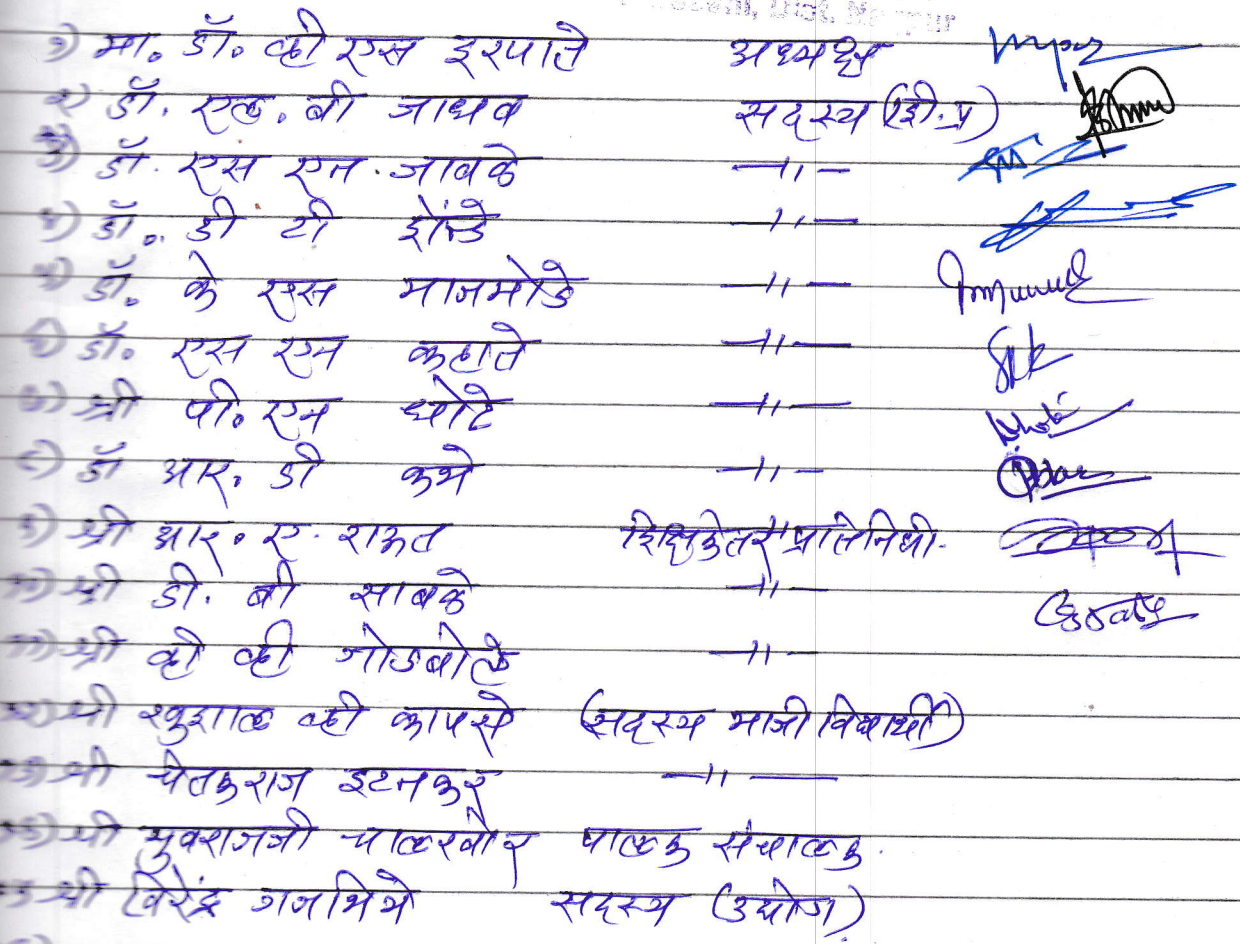 १) मा. डॉ. व्ही एस इरपाते अध्यक्ष
२) डॉ. एल. बी जाधव सदस्य (शि. प्र)
३) डॉ. एस एन. जावके —〃—
४) डॉ. डी टी शेंन्डे —〃—
५) डॉ. के एस माजमोडे —〃—
६) डॉ. एस एन कहाते —〃—
७) श्री पी. एन धोटे —〃—
८) डॉ आर. डी कभे —〃—
९) श्री आर. ए. राऊत शिक्षकेतर प्रतिनिधी.
१०) श्री डी. बी साबळे —〃—
११) श्री व्ही व्ही गोडबोले —〃—
१२) श्री खुशाल व्ही कापसे (सदस्य माजी विद्यार्थी)
१३) श्री चेतकराज इटनकर —〃—
श्री युवराजजी चालखोर पालक संचालक.
श्री विरेंद्र गजभिये सदस्य (उद्योग)